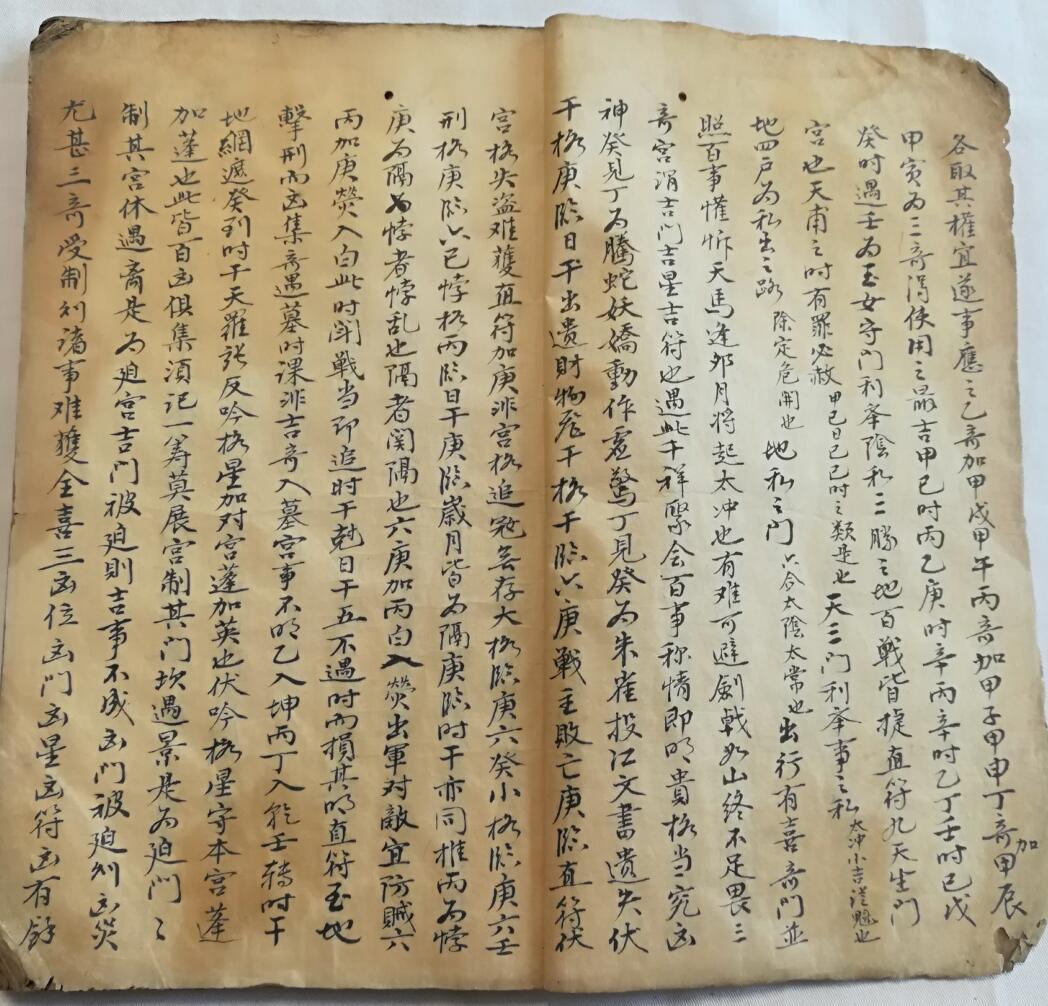 各取其權宜遂事應之乙奇加甲戌甲午丙奇加甲子甲申丁奇加甲辰
甲寅為三奇得使用之最吉甲己时丙乙庚时辛丙辛时乙丁壬时己戊
癸时遇壬为玉女守門利举陰私二勝之地百戰皆捷直符九天生門
宮也天甫之时有罪必赦甲己日己巳时之類是也天三門利举事之私太冲小吉從魁也
地四戶为私出之路除定危開也地私之門六合太陰太常也出行有喜奇門並
照百事懽忻天馬逢夘月将起太冲也有难可避劍戟如山终不足畏三
奇宮渭吉門吉星吉符也遇此千祥聚会百事称情即明貴格当究凶
神癸見丁为騰蛇妖嬌動作虚驚丁見癸为朱雀投江文書遗失伏
干格庚临日干出遗財物飛干格干临六庚戰主败亡庚临直符伏
宮格失盗难獲直符加庚飛宮格追寇無存大格临庚六癸小格临庚六壬
刑格庚临六己悖格丙临日干庚临歲月皆为隔庚临时干亦同推丙为悖
庚为隔为悖者悖乱也隔者関隔也六庚加丙白入熒出軍对敵宜防賊六
丙加庚熒入白此时闻戰当即追时干尅日干五不遇时而損其明直符至地
擊刑而凶集奇遇墓时課非吉奇入墓宮事不明乙入坤丙丁入乾壬轉时干
地網遮癸到时干天羅張反吟格星加对宮蓬加英也伏吟格星守本宮蓬
加蓬也此皆百凶俱集須记一筹莫展宮制其門坎遇景是为廹門〻
制其宮休遇离是为廹宮吉門被廹則吉事不成凶門被廹則凶災
尤甚三奇受制則諸事难獲全喜三凶位凶門凶星凶符凶有餘